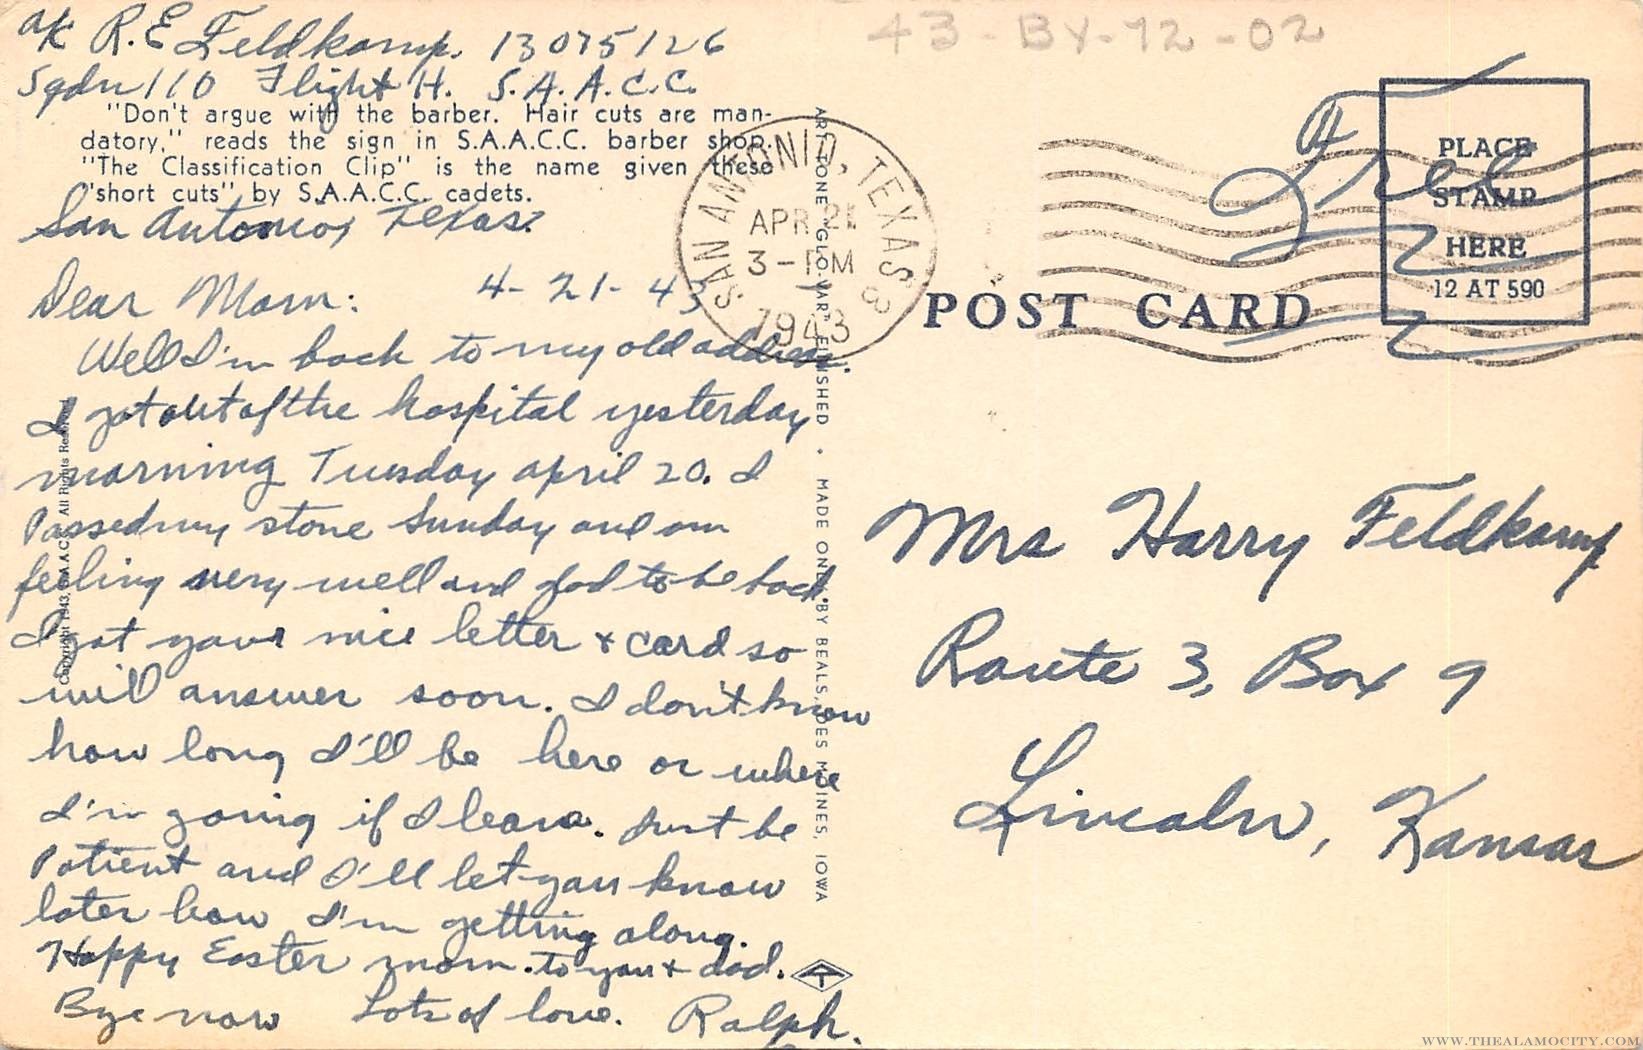 a/c R.E Feldkamp. 13075126
Sqdn 110 Flight H. S.A.A.C.C.
"Don't argue with the barber. Hair cuts are man-
datory," reads the sign in S.A.A.C.C. barber shop.
"The Classification Clip" is the name given these
"short cuts" by S.A.A.C.C. cadets.
San Antonio, Texas.
Dear Mom: 4-21-43
Well I'm back to my old address.
I got out of the hospital yesterday
morning Tuesday april 20. I
Passed my stone Sunday and am
feeling very well and glad to be back.
I got your nice letter + card so
will answer soon. I don't know
how long I'll be here or where
I'm going if I leave. Just be
Patient and I'll let you know
later how I'm getting along.
Happy Easter mom. to you + dad.
Bye now Lots of love. Ralph.
Copyright 1943, S.A.A.C.C. All Rights Reserved
ART TONE "GLO-VAR" FINISHED · MADE ONLY BY BEALS, DES MOINES, IOWA
43-BY-72-02
SAN ANTONIO, TEXAS 3
APR 21
3-PM
1943
Free
PLACE
STAMP
HERE
12 AT 590
POST CARD
Mrs Harry Feldkamp
Route 3, Box 9
Lincoln, Kansas
WWW.THEALAMOCITY.COM